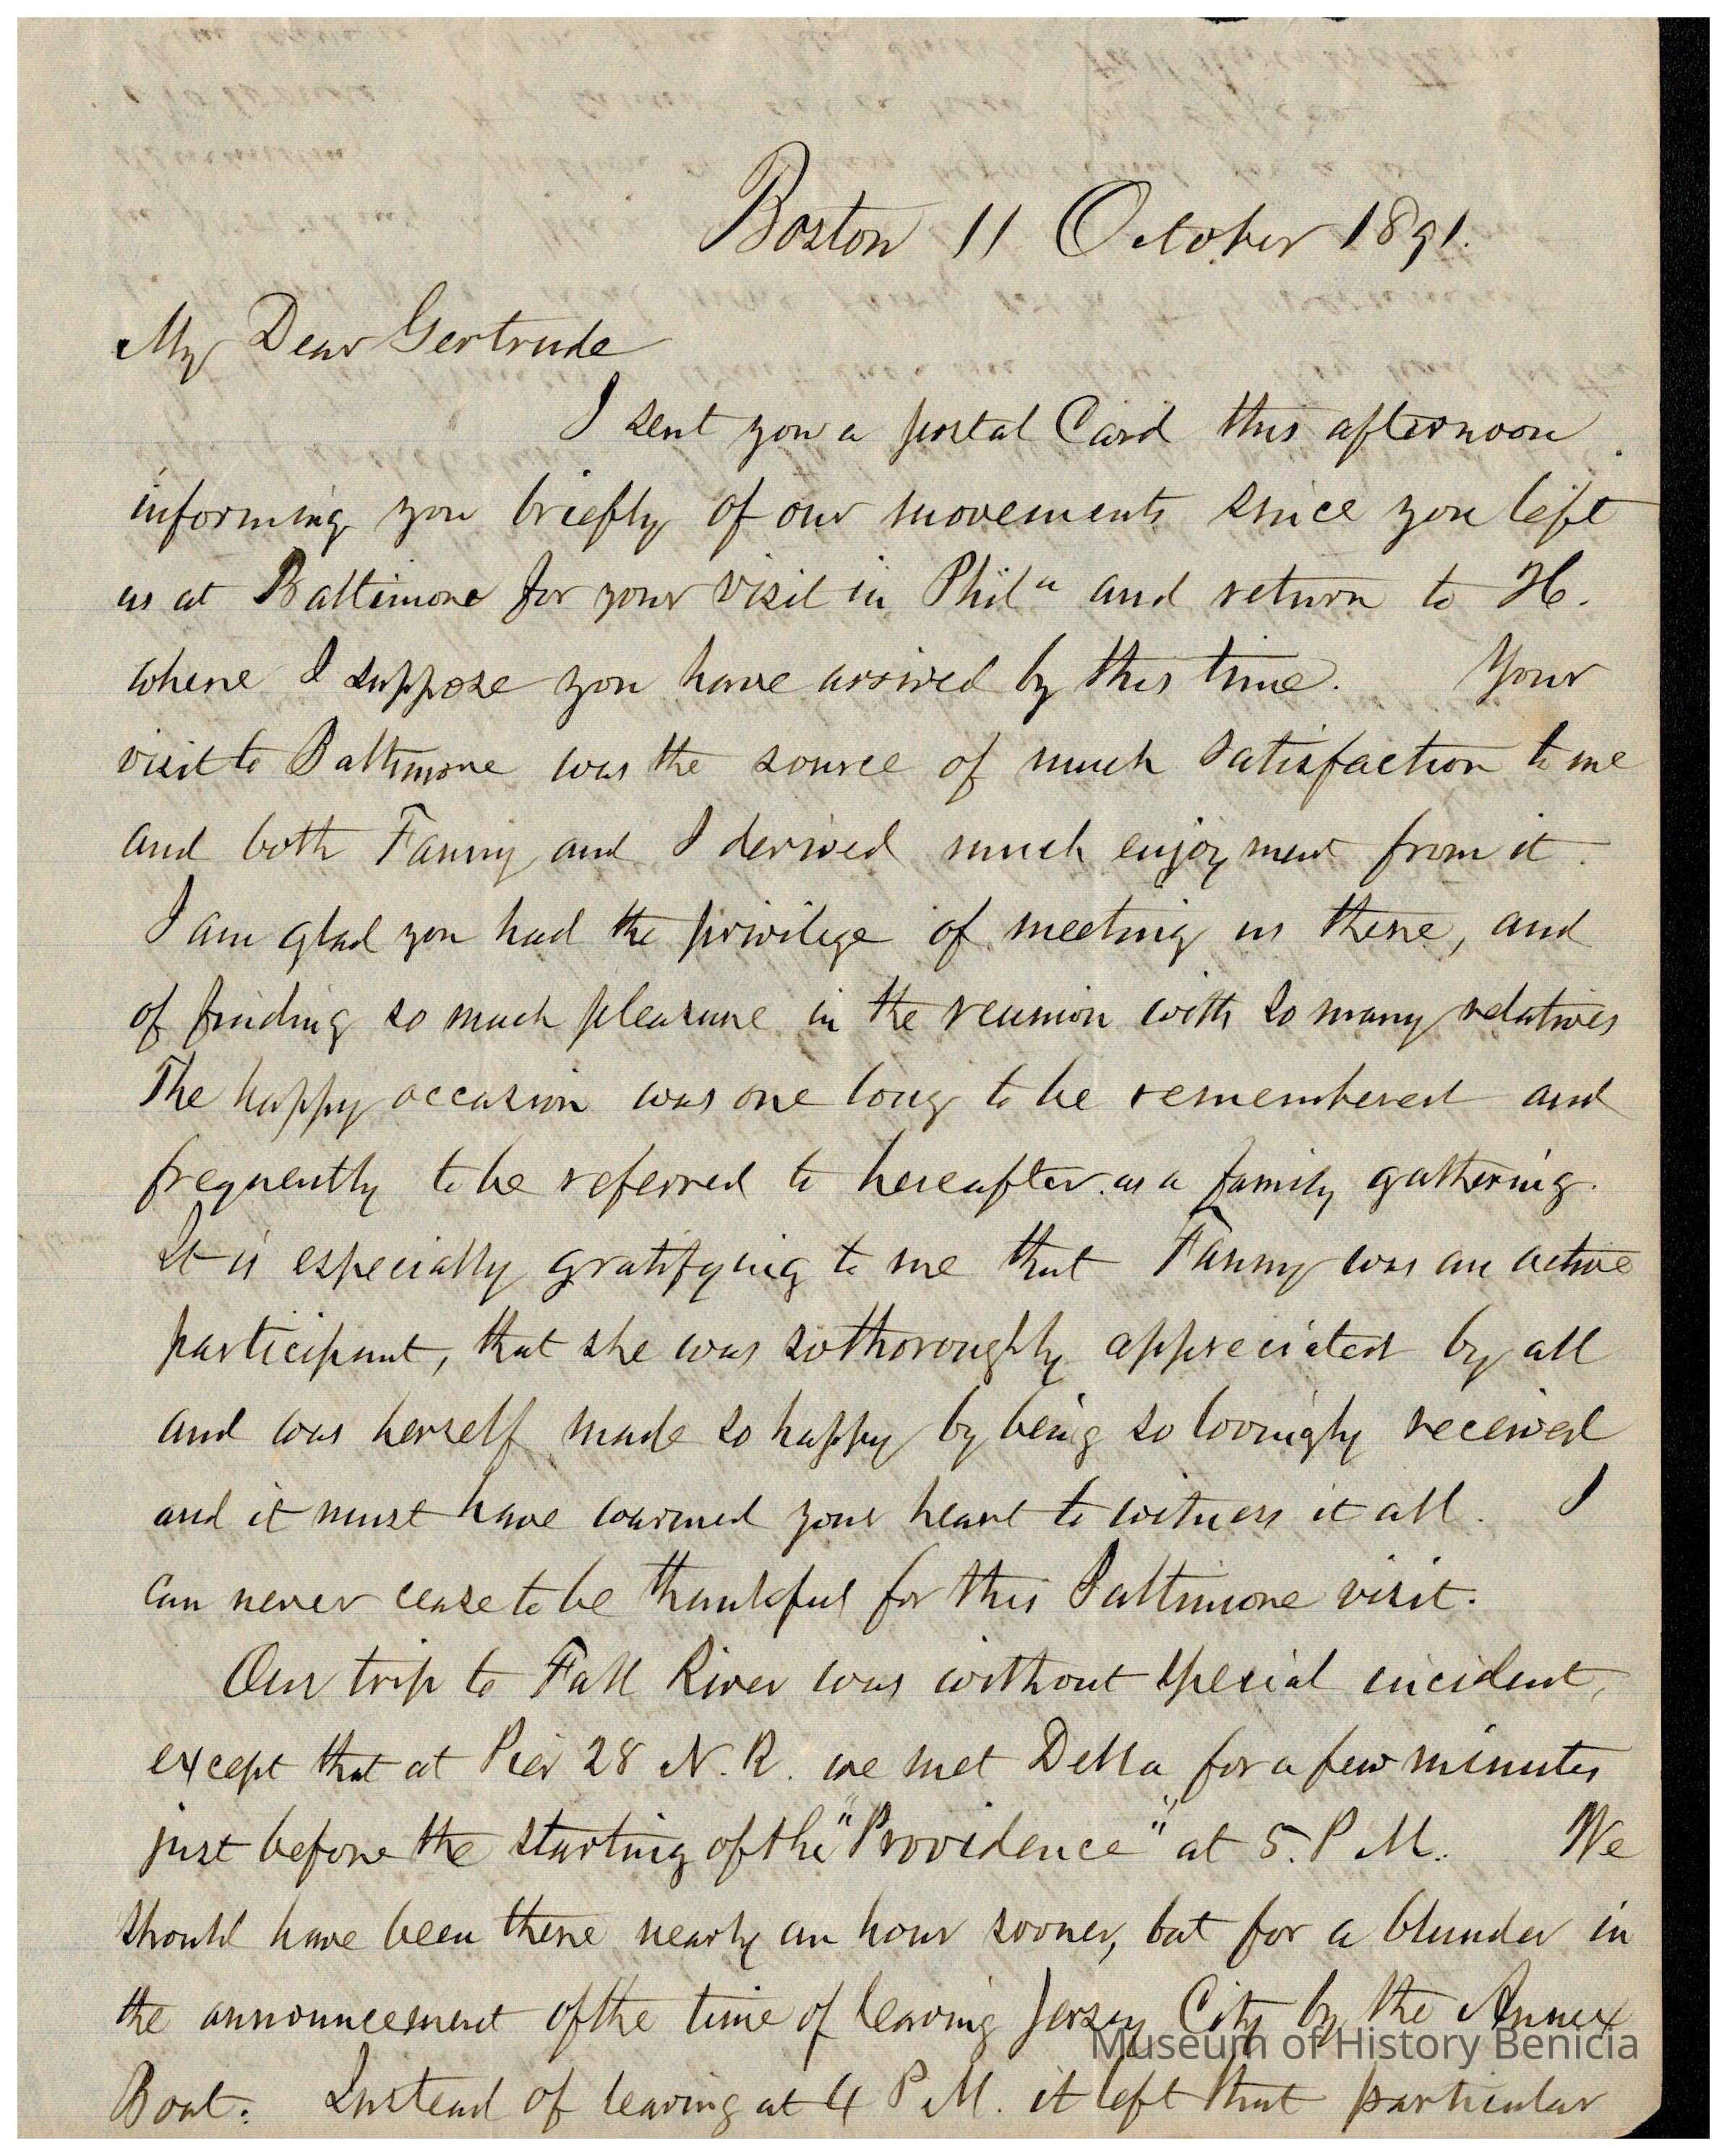 Boston 11 October 1891.
My Dear Gertrude
I sent you a postal Card this afternoon
informing you briefly of our movements since you left
us at Baltimore for your visit in Philª and return to H.
where I suppose you have arrived by this time. Your
visit to Baltimore was the source of much satisfaction to me
and both Fanny and I derived much enjoyment from it.
I am glad you had the privilege of meeting us there, and
of finding so much pleasure in the reunion with so many relatives
The happy occasion was one long to be remembered and
frequently to be referred to hereafter as a family gathering.
It is especially gratifying to me that Fanny was an active
participant, that she was so thoroughly appreciated by all
and was herself made so happy by being so lovingly received
and it must have warmed your heart to witness it all. I
can never cease to be thankful for this Baltimore visit.
Our trip to Fall River was without special incident,
except that at Pier 28 N. R. we met Della for a few minutes
just before the starting of the "Providence" at 5. P M. We
should have been there nearly an hour sooner, but for a blunder in
the announcement of the time of leaving Jersey City by the Annex
Boat. Instead of leaving at 4 P M. it left that particular
Museum of History Benicia